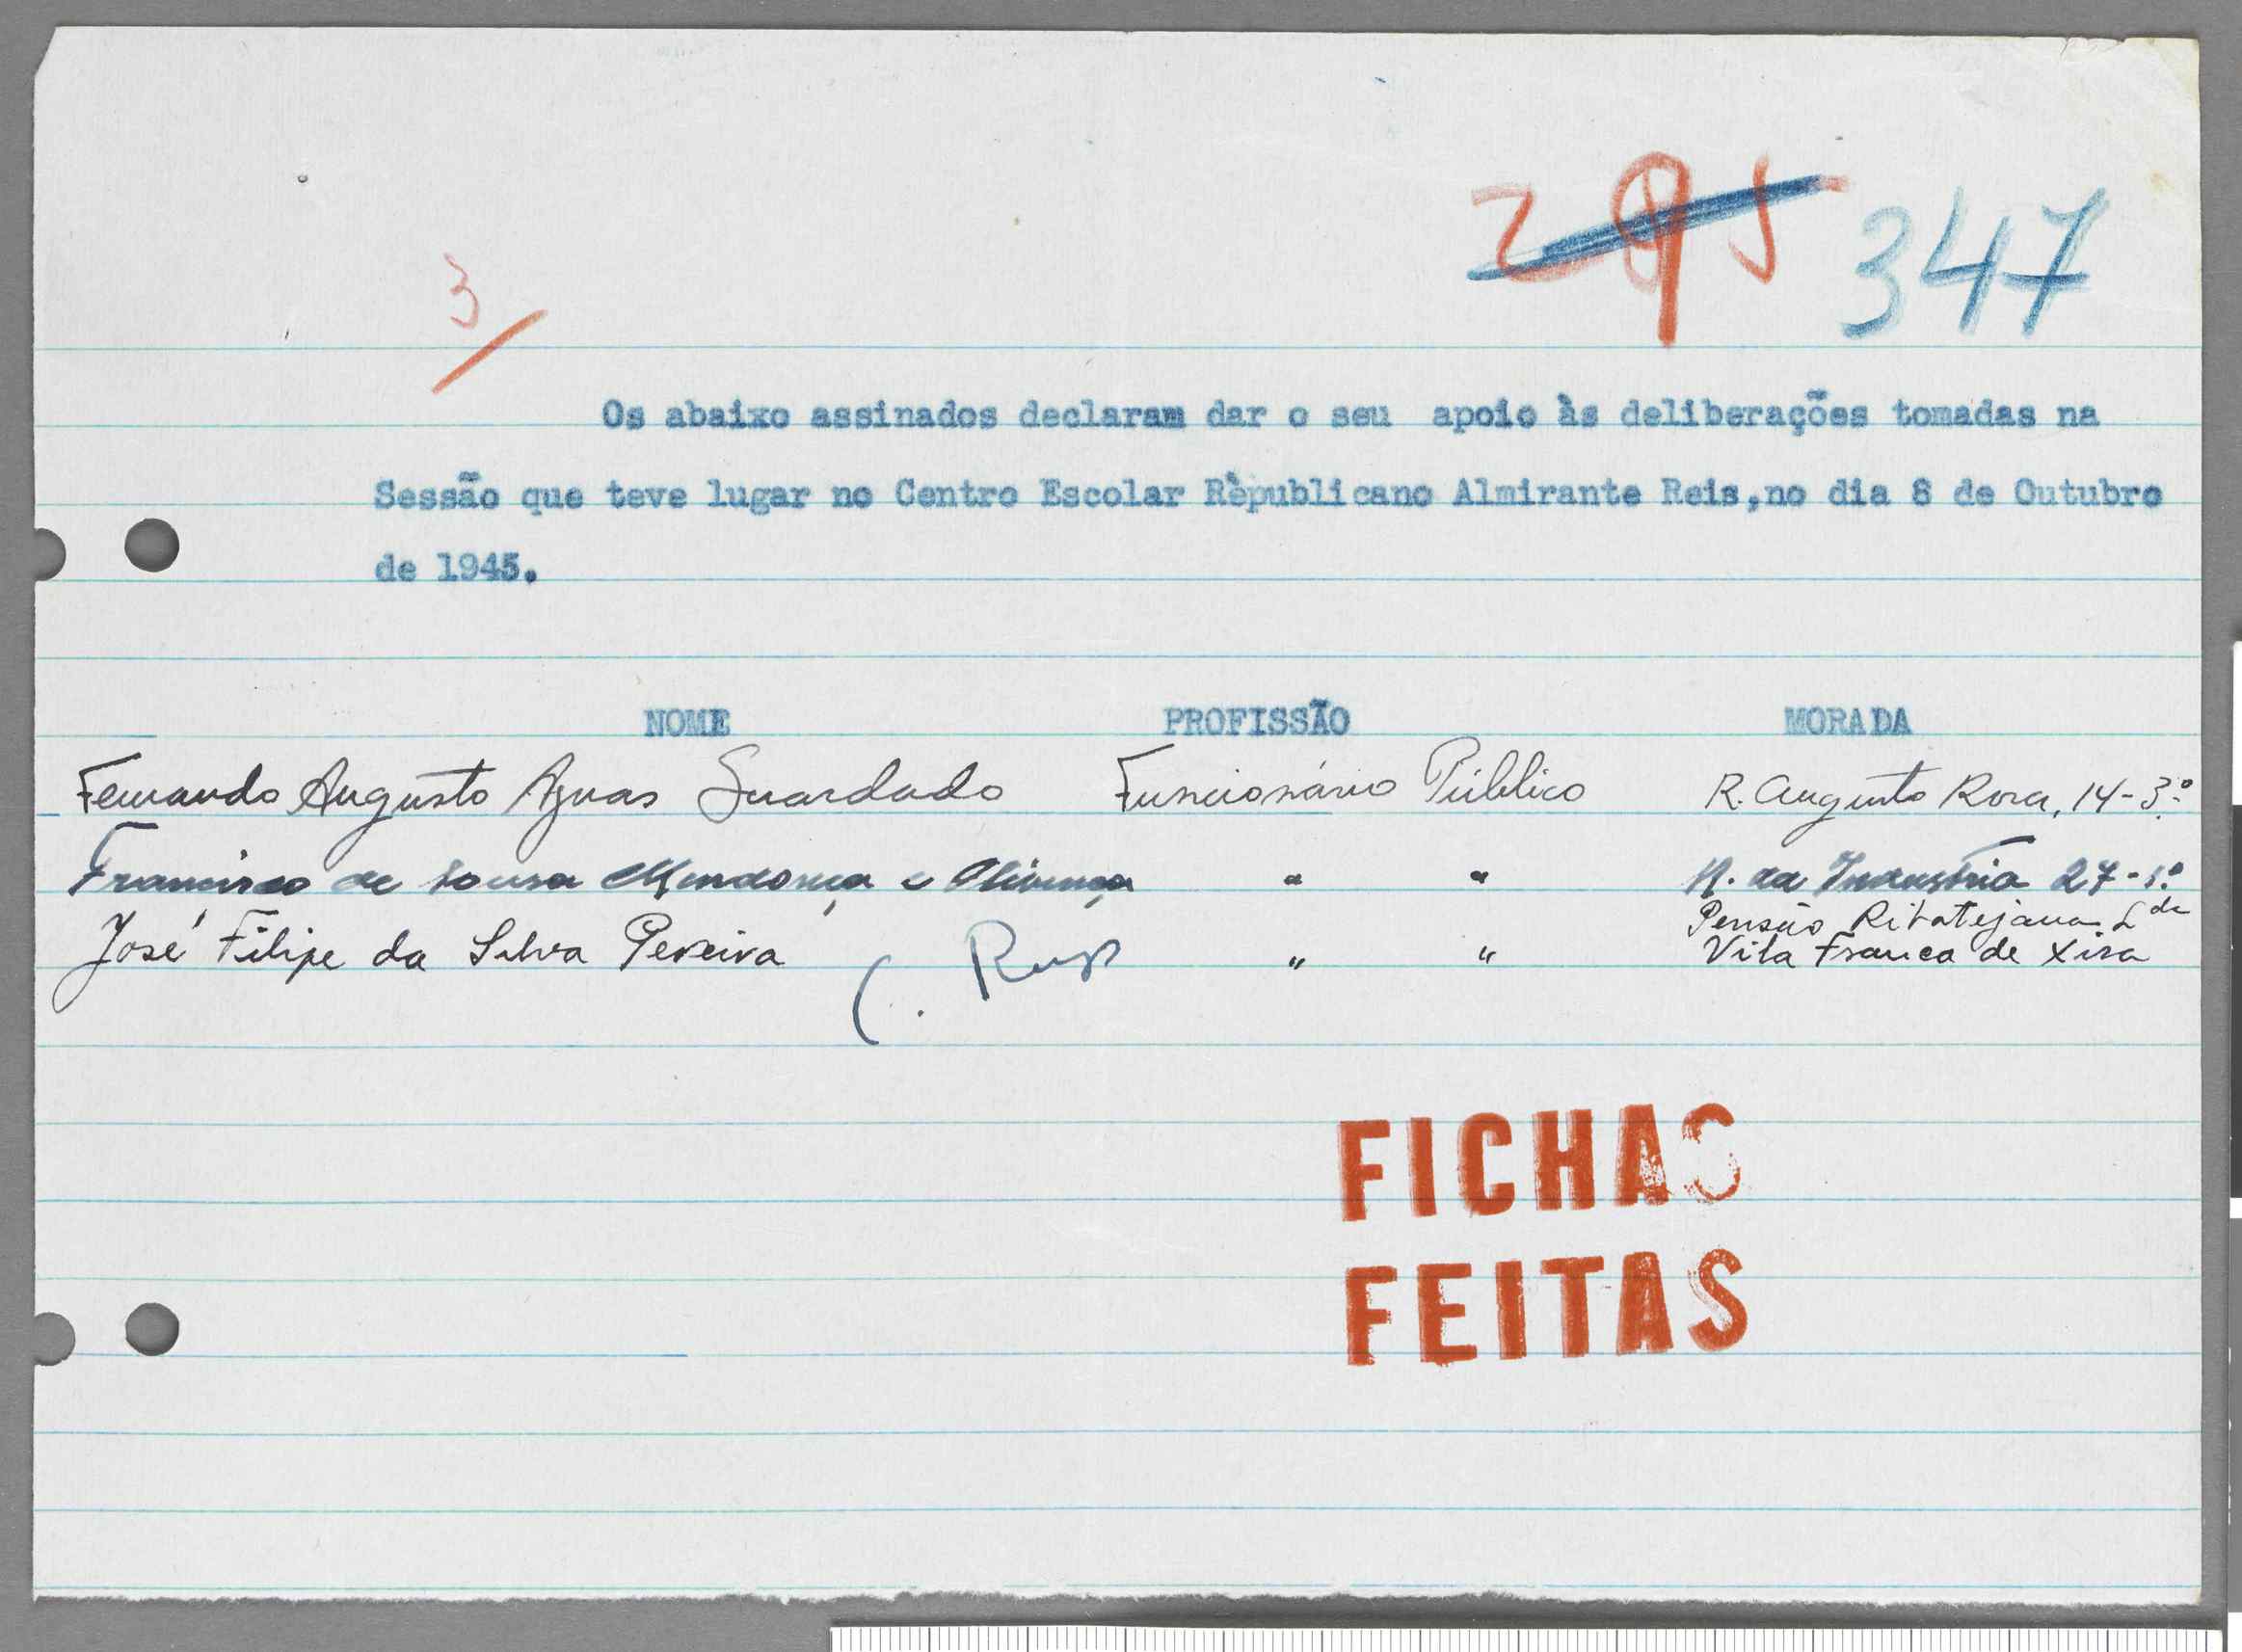 295 347
3/
Os abaixo assinados declaram dar o seu apoio às deliberações tomadas na
Sessão que teve lugar no Centro Escolar Rèpublicano Almirante Reis,no dia 8 de Outubro
de 1945.
NOME PROFISSÃO MORADA
Fernando Augusto Aguas Guardado Funcionário Público R. Augusto Rosa, 14-3º
Francisco de Sousa Mendonça e Olivença " " R. da Industria 27-1º
Pensão Ribatejana Lda
José Filipe da Silva Pereira " " Vila Franca de Xira
FICHAS
FEITAS